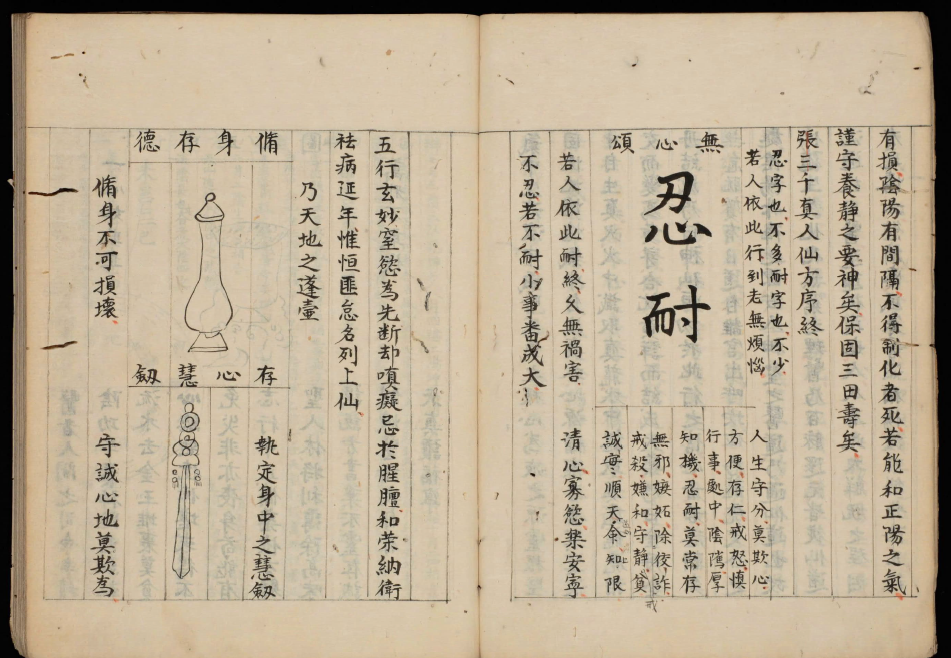 有損陰陽有間隔不得制化者死若能和正陽之氣
謹守養静之要神矣保固三田壽矣
張三千真人仙方序終
忍字也不多耐字也不少
若人依此行到老無煩惱
無心頌
忍耐
若人依此耐終久無禍害
不忍若不耐小事畨成大
人生守分莫欺心
方便存仁戒怒慎
行事處中陰隲厚
知機忍耐莫常存
無邪嫉妬除佼詐
戒殺嫌和守静貧
誠實順天命知限
戒
清心寡慾樂安寧
五行玄妙窒慾為先断却嗔癡忌於腥膻和荣納衛
祛病延年惟恒匪怠名列上仙
乃天地之蓬壷
脩身存德
脩身不可損壞
存心慧劔
執定身中之慧劔
守誠心地莫欺為